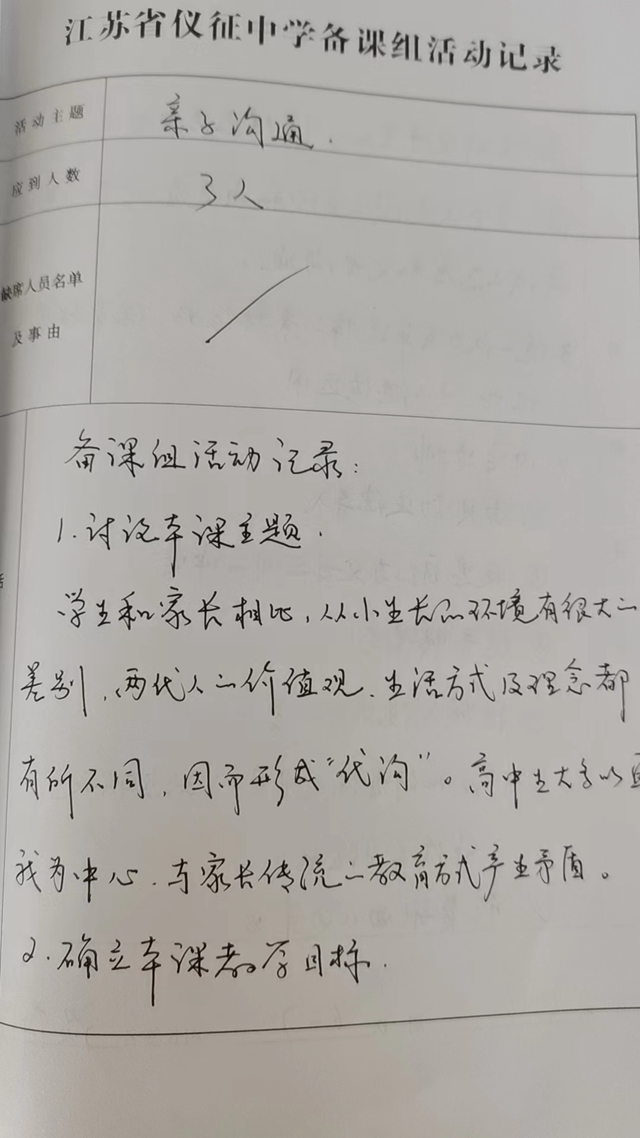 江苏省仪征中学备课组活动记录
活动主题 亲子沟通.
应到人数 3人
缺席人员名单
及事由
备课组活动记录:
1. 讨论本课主题.
学生和家长相比, 从小生长的环境有很大的
差别, 两代人的价值观、生活方式及理念都
有所不同, 因而形成"代沟"。高中生大多以
我为中心、与家长传统的教育方式产生矛盾。
2. 确立本课教学目标.